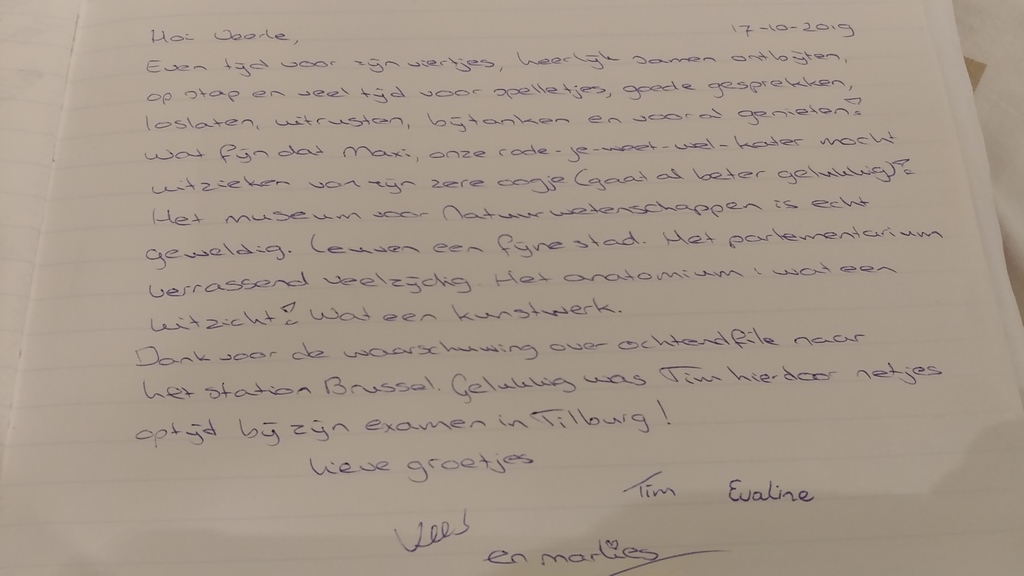 Hoi Veerle, 17-10-2019
Even tijd voor zijn viertjes, heerlijk samen ontbijten,
op stap en veel tijd voor spelletjes, goede gesprekken,
loslaten, uitrusten, bijtanken en vooral genieten!
Wat fijn dat Maxi, onze rode-je-weet-wel-kater mocht
uitzieken van zijn zere oogje (gaat al beter gelukkig)!
Het museum voor Natuurwetenschappen is echt
geweldig. Leuven een fijne stad. Het parlementarium
verrassend veelzijdig. Het anatomium: wat een
uitzicht! Wat een kunstwerk.
Dank voor de waarschuwing over ochtendfile naar
het station Brussel. Gelukkig was Tim hierdoor netjes
optijd bij zijn examen in Tilburg!
Lieve groetjes
Tim Evaline
Kees
en marlies